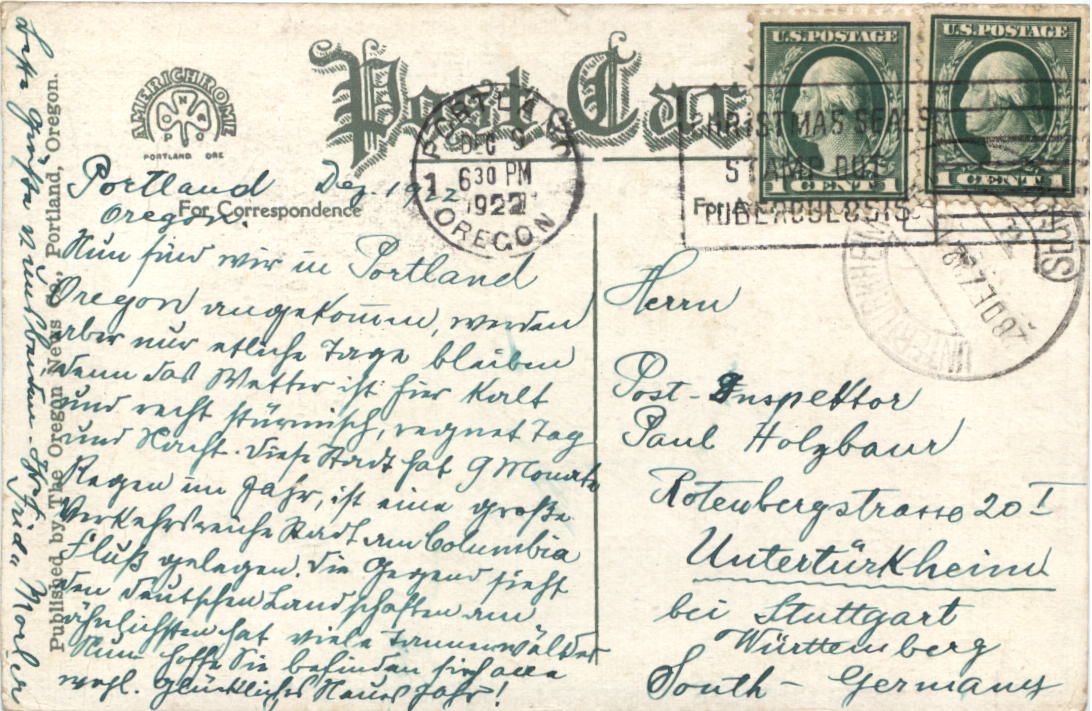 AMERICHROME
PORTLAND ORE
Post Car
For Correspondence
PORTLAND
DEC 9
6 30 PM
1922
OREGON
1
CHRISTMAS SEALS
STAMP OUT
TUBERCULOSIS
U.S. POSTAGE
1 CENT 1
U.S. POSTAGE
1 CENT 1
Portland Dez. 1922
Oregon.
Nun sind wir in Portland
Oregon angekommen, werden
aber nur etliche Tage bleiben
denn das Wetter ist hier kalt
und recht stürmisch, regnet Tag
und Nacht. Diese Stadt hat 9 Monate
Regen im Jahr, ist eine große
Verkehrsreiche Stadt am Columbia
Fluß gelegen. Die Gegend sieht
den deutschen Landschaften am
ähnlichsten hat viele Tannenwälder
Nun hoffe Sie befinden sich alle
wohl. Glückliches Neues Jahr!
Beste Grüße
Frida
Published by The Oregon News Co., Portland, Oregon.
Herrn
Post-Inspektor
Paul Holzbaur
Rotenbergstrasse 20 I
Untertürkheim
bei Stuttgart
Württemberg
South - Germany